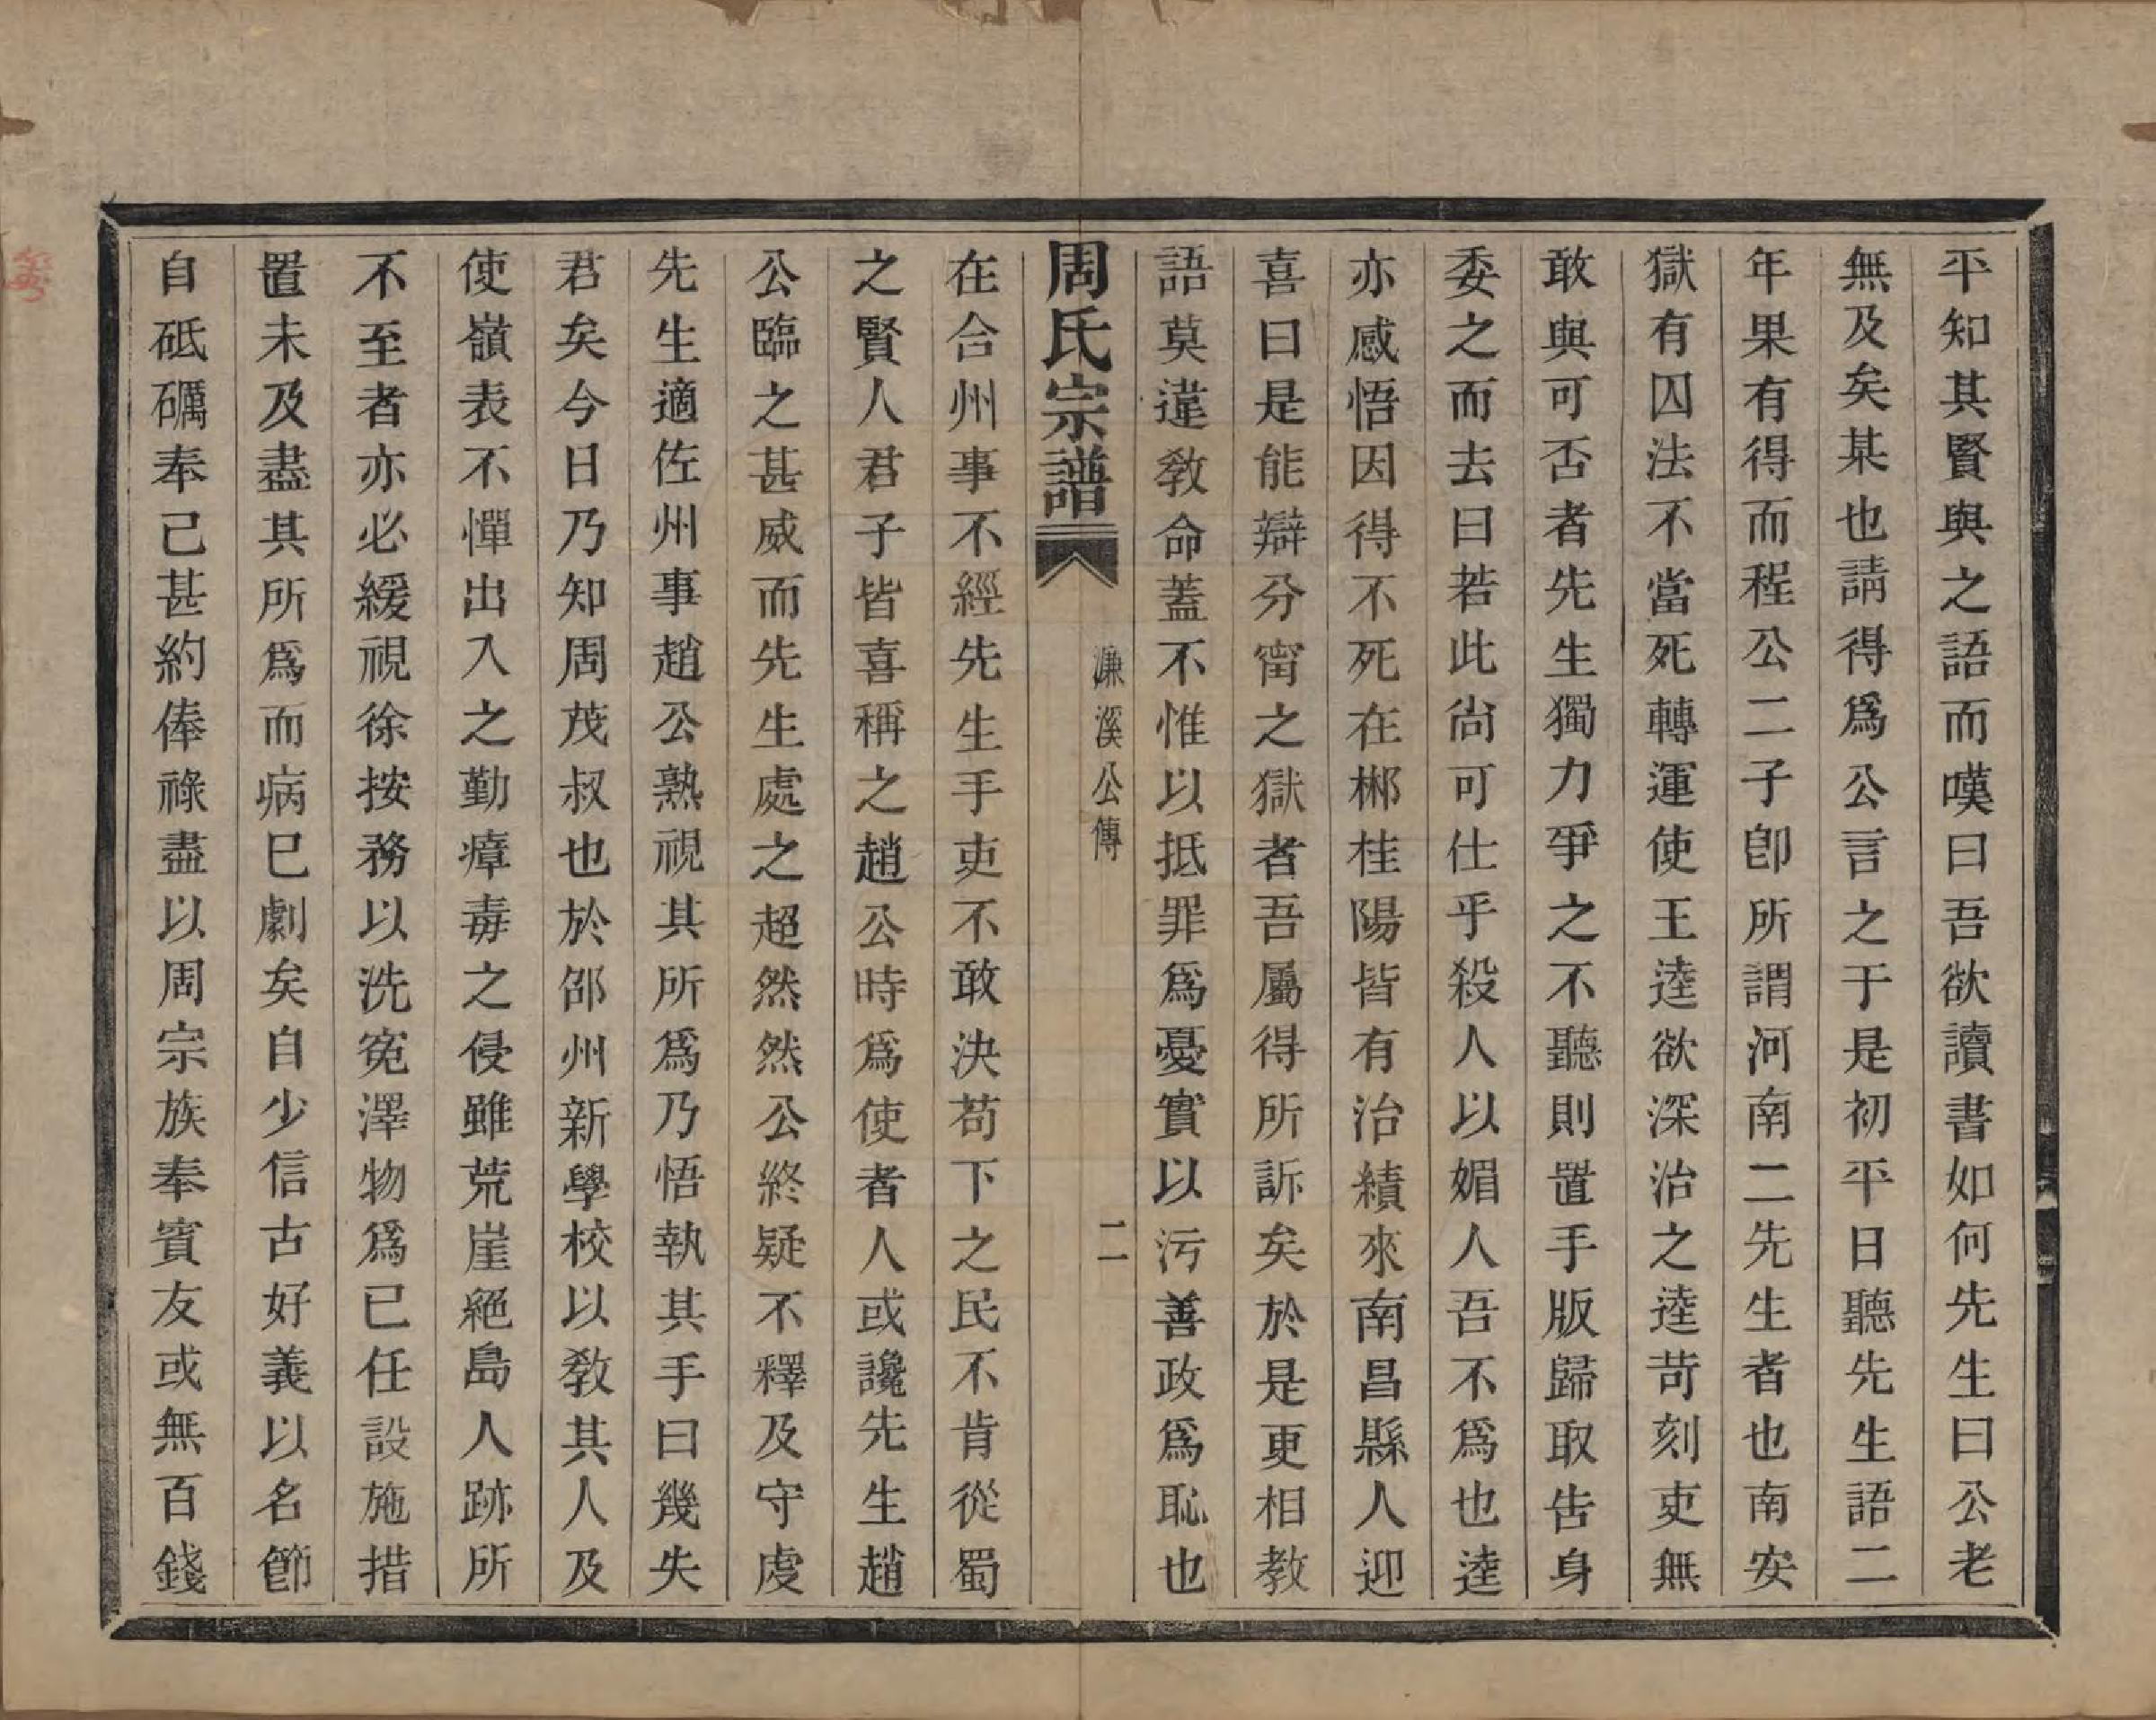 平知其賢與之語而嘆曰吾欲讀書如何先生曰公老
無及矣某也請得爲公言之于是初平日聽先生語二
年果有得而程公二子卽所謂河南二先生者也南安
獄有囚法不當死轉運使王逵欲深治之逵苛刻吏無
敢與可否者先生獨力爭之不聽則置手版歸取告身
委之而去曰若此尙可仕乎殺人以媚人吾不爲也逵
亦感悟因得不死在郴桂陽皆有治績來南昌縣人迎
喜曰是能辯分甯之獄者吾屬得所訴矣於是更相教
語莫違教命蓋不惟以抵罪爲憂實以污善政爲恥也
周氏宗譜
濂溪公傳
二
在合州事不經先生手吏不敢決苟下之民不肯從蜀
之賢人君子皆喜稱之趙公時爲使者人或讒先生趙
公臨之甚威而先生處之超然然公終疑不釋及守虔
先生適佐州事趙公熟視其所爲乃悟執其手曰幾失
君矣今日乃知周茂叔也於邵州新學校以教其人及
使嶺表不憚出入之勤瘴毒之侵雖荒崖絕島人跡所
不至者亦必緩視徐按務以洗冤澤物爲已任設施措
置未及盡其所爲而病巳劇矣自少信古好義以名節
自砥礪奉己甚約俸祿盡以周宗族奉賓友或無百錢